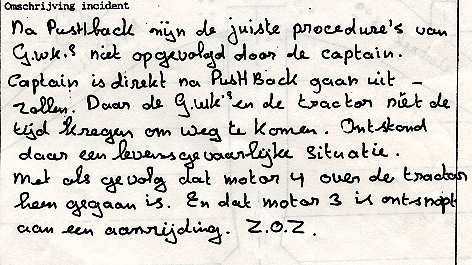 Omschrijving incident
Na Pushback zijn de juiste procedure's van
G.wk.s niet opgevolgd door de captain.
Captain is direkt na Push Back gaan uit -
zollen. Daar de G.wk.s en de tractor niet de
tijd kregen om weg te komen. Ontstond
daar een levensgevaarlijke situatie.
Met als gevolg dat motor 4 over de tractor
heen gegaan is. En dat motor 3 is ontsnapt
aan een aanrijding. Z.O.Z.